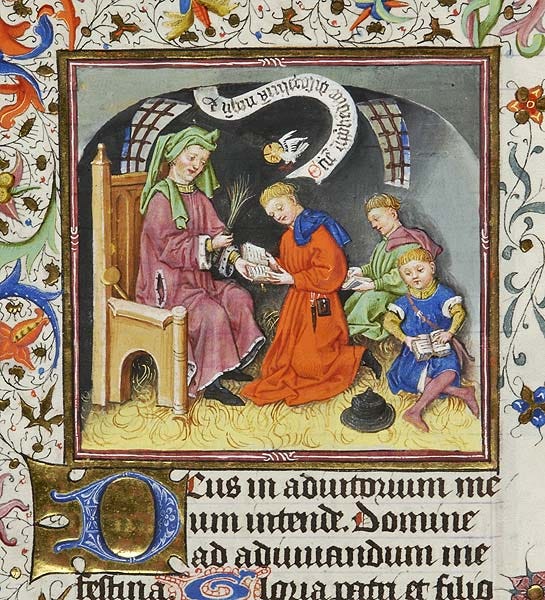 Deus in adiutorium me
um intende. Domine
ad adiuuandum me
festina. Gloria patri et filio